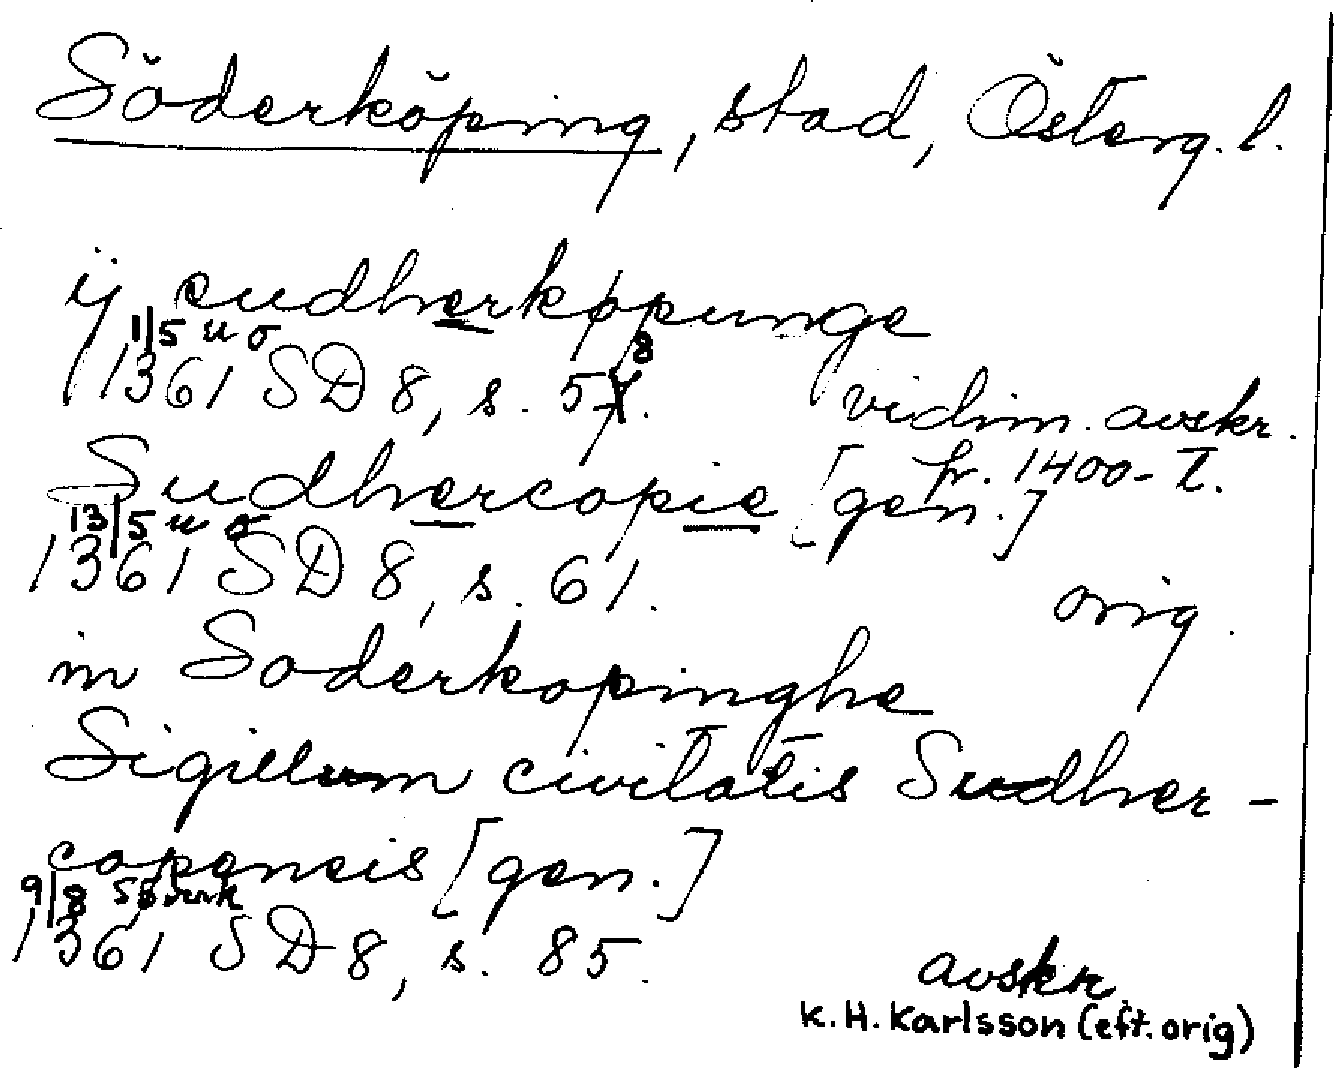 Söderköping, stad, Österg. l.
ij sudherkøpunge
1/5 u o
1361 SD 8, s. 58. vidim. avskr.
fr. 1400-t.
Sudhercopie [gen.]
13/5 u o
1361 SD 8, s. 61. orig.
in Soderkopinghe
Sigillum civitatis Sudher-
copensis [gen.]
9/8
1361 SD 8, s. 85. avskr.
K. H. Karlsson (eft. orig)